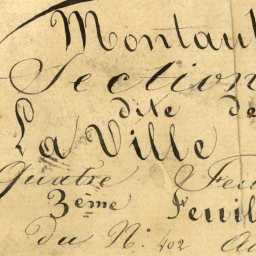 Montau
Section
dite de
La Ville
Quatre Feu
3ème Feuil
du N.° 402 Au